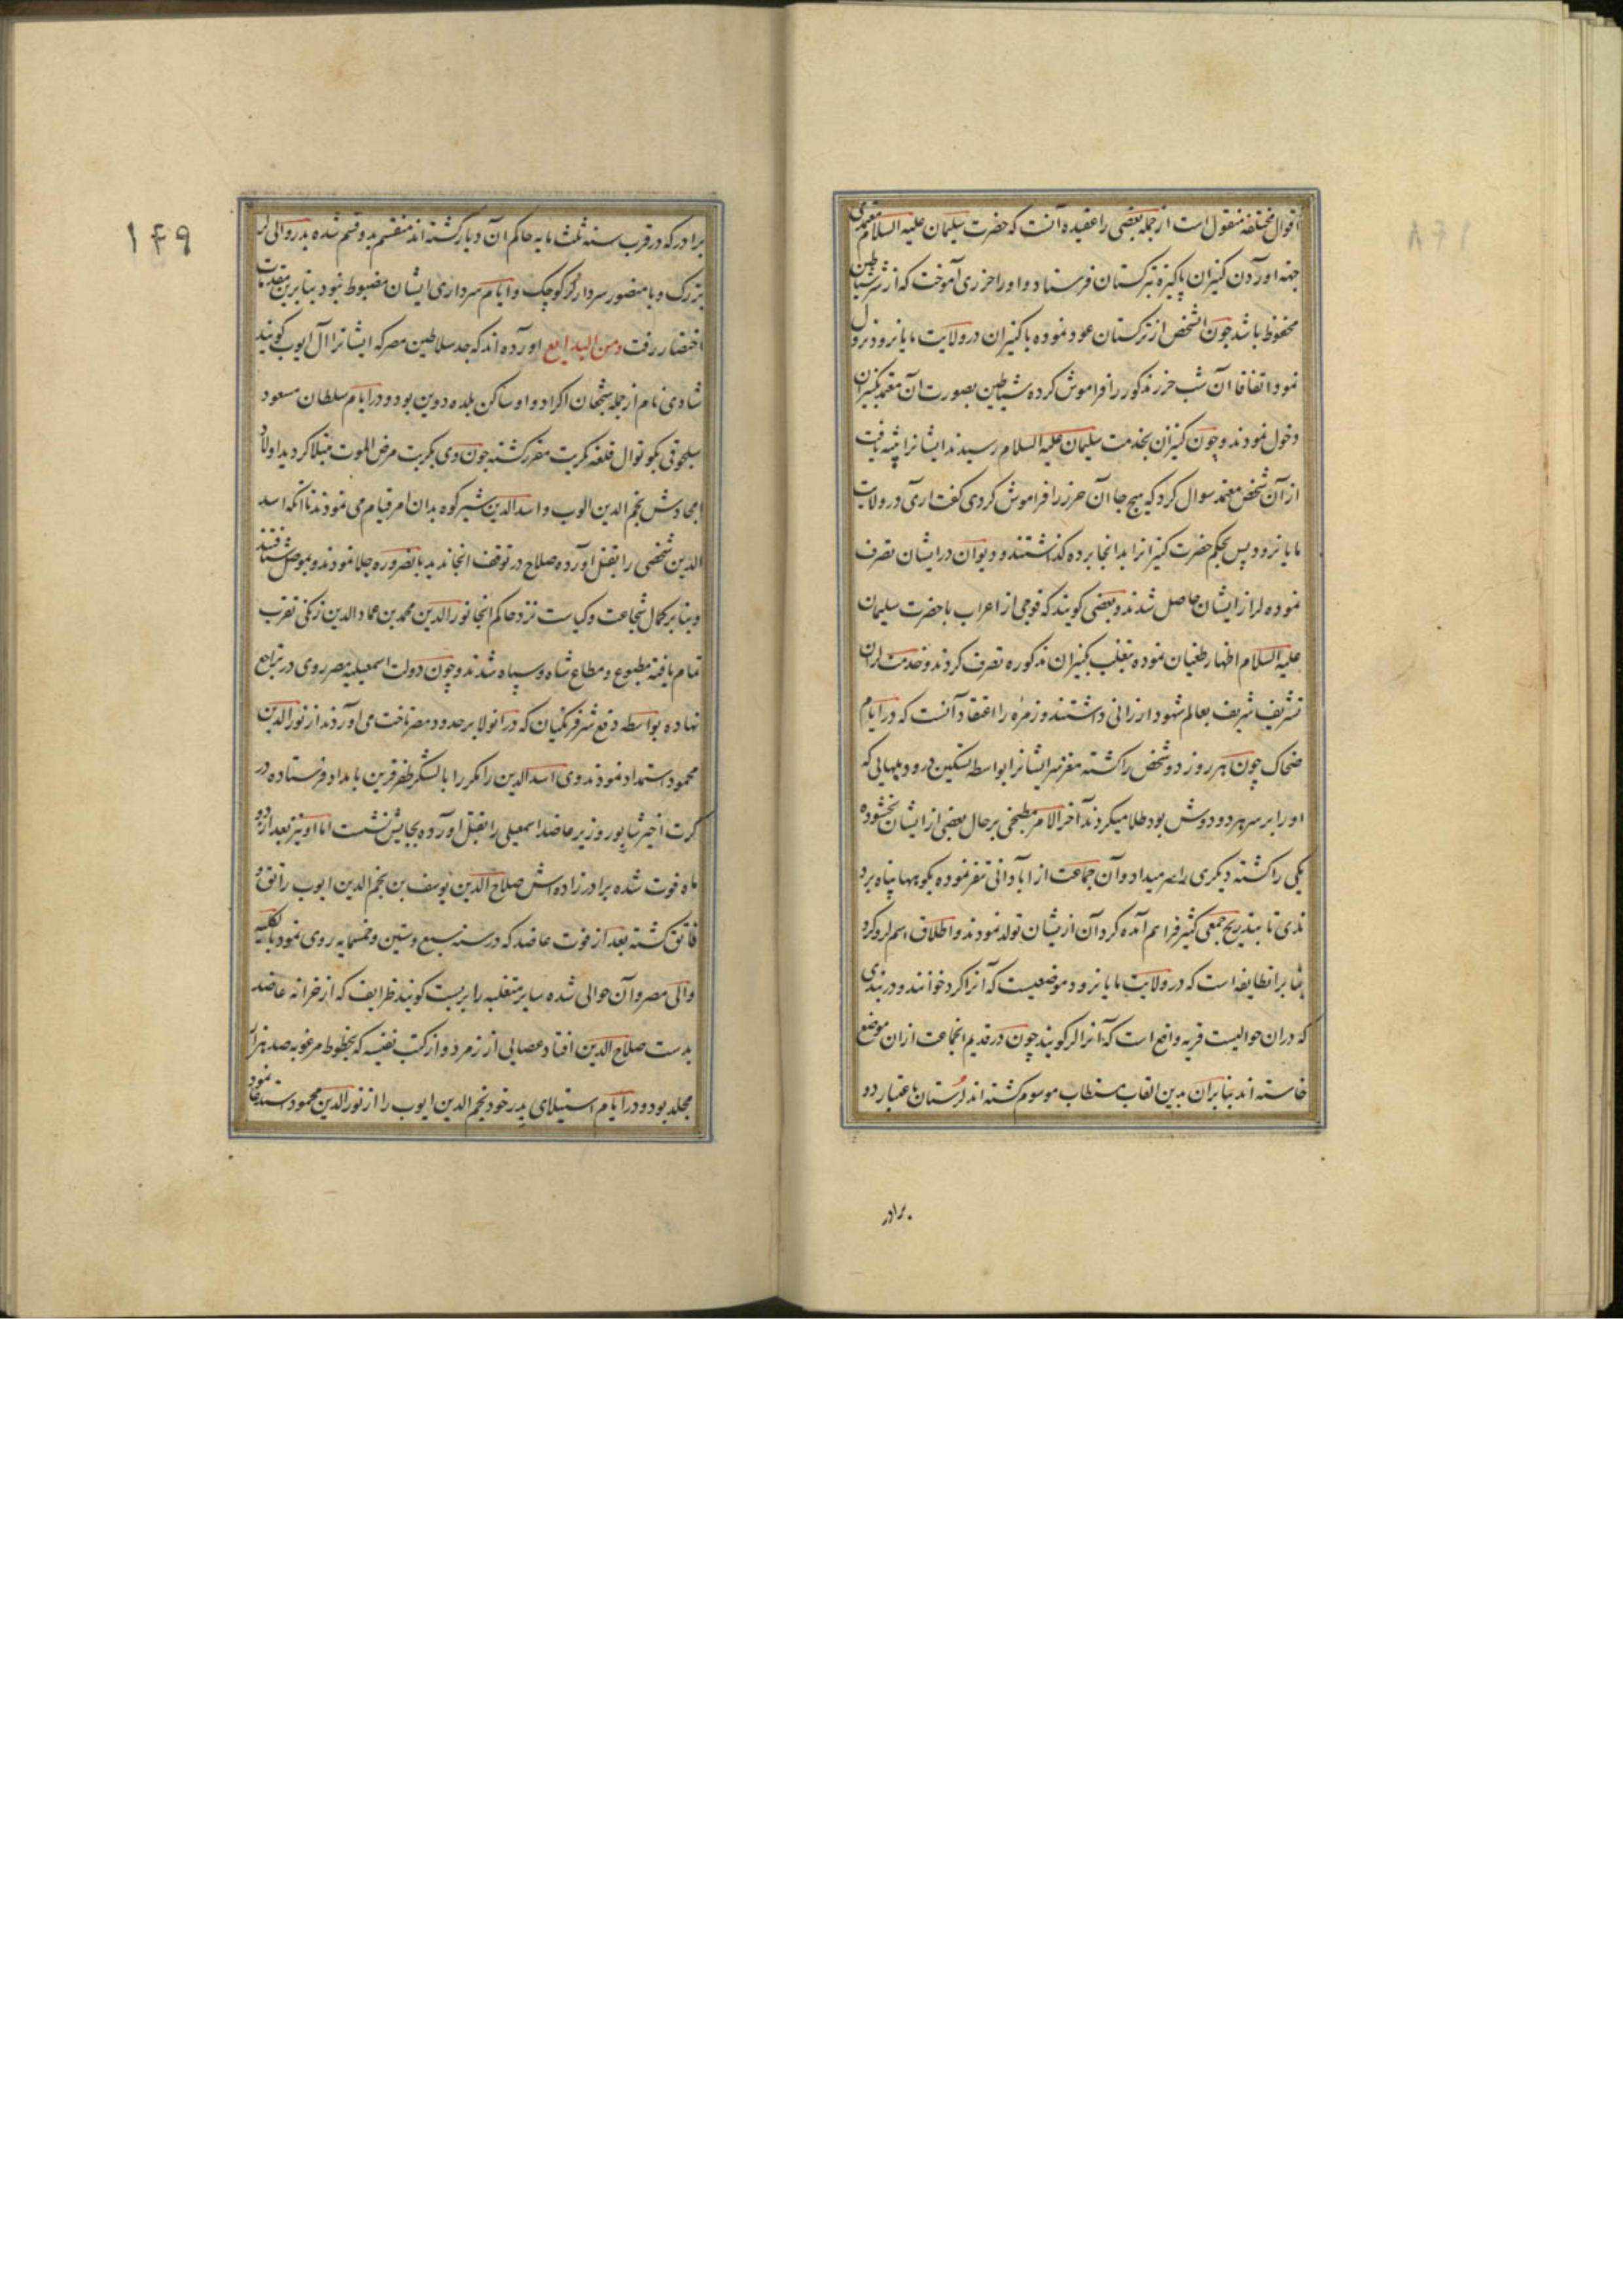 اقوال مختلفه منقول است از جمله بعضی را عقیده آنست که حضرت سلیمان علیه السلام معتمدی
جهته اوردن کنیزان پاکیزه بترکستان فرستاد و او را حرزی آموخت که از شر شیاطین
محفوظ باشد چون انشخص از ترکستان عود نموده با کنیزان در ولایت مایانرود نزول
نمود اتفاقا آن شب حرز مذکور را فراموش کرده شیاطین بصورت آن معتمد بکنیزان
دخول نمودند و چون کنیزان بخدمت سلیمان علیه السلام رسیدند ایشانرا ثیبه یافت
از آن شخص معتمد سوال کرد که هیچ جا آن حرز را فراموش کردی گفت اری در ولایت
مایانرود پس بحکم حضرت کنیزانرا بدانجا برده گذاشتند و دیوان در ایشان تصرف
نموده لر از ایشان حاصل شدند و بعضی کویند که فوجی از اعراب با حضرت سلیمان
علیه السلام اظهار طغیان نموده بتغلب کنیزان مذکوره تصرف کردند و خدمت لران
تشریف شریف بعالم شهود ارزانی داشتند و زمره را اعتقاد آنست که در ایام
ضحاک چون هر روز دو شخص را کشته مغز سر ایشانرا بواسطه تسکین درد و مهایی که
او را بر سر هر دو دوش بود طلا میکردند آخر الامر مطبخی بر حال بعضی از ایشان بخشوده
یکی را کشته دیکری را سر میداد و آن جماعت از آبادانی متنفر نموده بکوهها پناه برد
ندی تا بتدریج جمعی کثیر فراهم آمده کردان از یشان تولد نمودند و اطلاق اسم لر و کرد
بنا بر انطایفه است که در ولایت مایانرود موضعیست که آنرا کرد خوانند و در بندی
که دران حوالیست قریه واقع است که آنرا لر کویند چون در قدیم انجماعت ازان موضع
خاسته اند بنابران بدین القاب مستطاب موسوم کشته اند لرستان باعتبار دو
برادر
۱۴۹
برادر که در قرب سنه ثلث مایه حاکم آن دیار کشته اند منقسم بدو قسم شده بدر والی لر
بزرک و با منصور سردار لر کوچک و ایام سرداری ایشان مضبوط نبود بنا برین مقدمات
اختصار رفت ومن البدایع اورده اند که جد سلاطین مصر که ایشانرا آل ایوب کویند
شادی نام از جمله شجعان اکراد و او ساکن بلده دوین بود و در ایام سلطان مسعود
سلجوقی بکوتوال قلعه تکریت مقرر کشته چون وی بتکریت مرض الموت مبتلا کردید اولاد
امجادش نجم الدین ایوب و اسد الدین شیرکوه بدان امر قیام می نمودند تا آنکه اسد
الدین شخصی را بقتل اورده صلاح در توقف انجا ندید بالضروره جلا نمودند و بموصل شتافتند
و بنا بر کمال شجاعت و کیاست نزد حاکم انجا نور الدین محمد بن عماد الدین زنکی تقرب
تمام یافته مطبوع و مطاع شاه و سپاه شدند و چون دولت اسمعیلیه مصر روی در تراجع
نهاده بواسطه دفع شر فرنکیان که در انولا بر حدود مصر تاخت می اوردند از نور الدین
محمود استمداد نمودند وی اسد الدین را مکرر با لشکر ظفر قرین بامداد فرستاده در
کرت اخیر شاپور وزیر عاضد اسمعیلی را بقتل اورده بجایش نشست اما او نیز بعد از دو
ماه فوت شده برادر زاده اش صلاح الدین یوسف بن نجم الدین ایوب راتق و
فاتق کشته بعد از فوت عاضد که در سنه سبع و ستین و خمسمایه روی نمود بالکلیه
والی مصر و آن حوالی شده سایر متغلبه را بر بست کویند ظرایف که از خزانه عاضد
بدست صلاح الدین افتاد عصایی از زمرد و از کتب نفیسه که بخطوط مرغوبه صد هزار
مجلد بود و در ایام استیلای پدر خود نجم الدین ایوب را از نور الدین محمود استدعا نمود